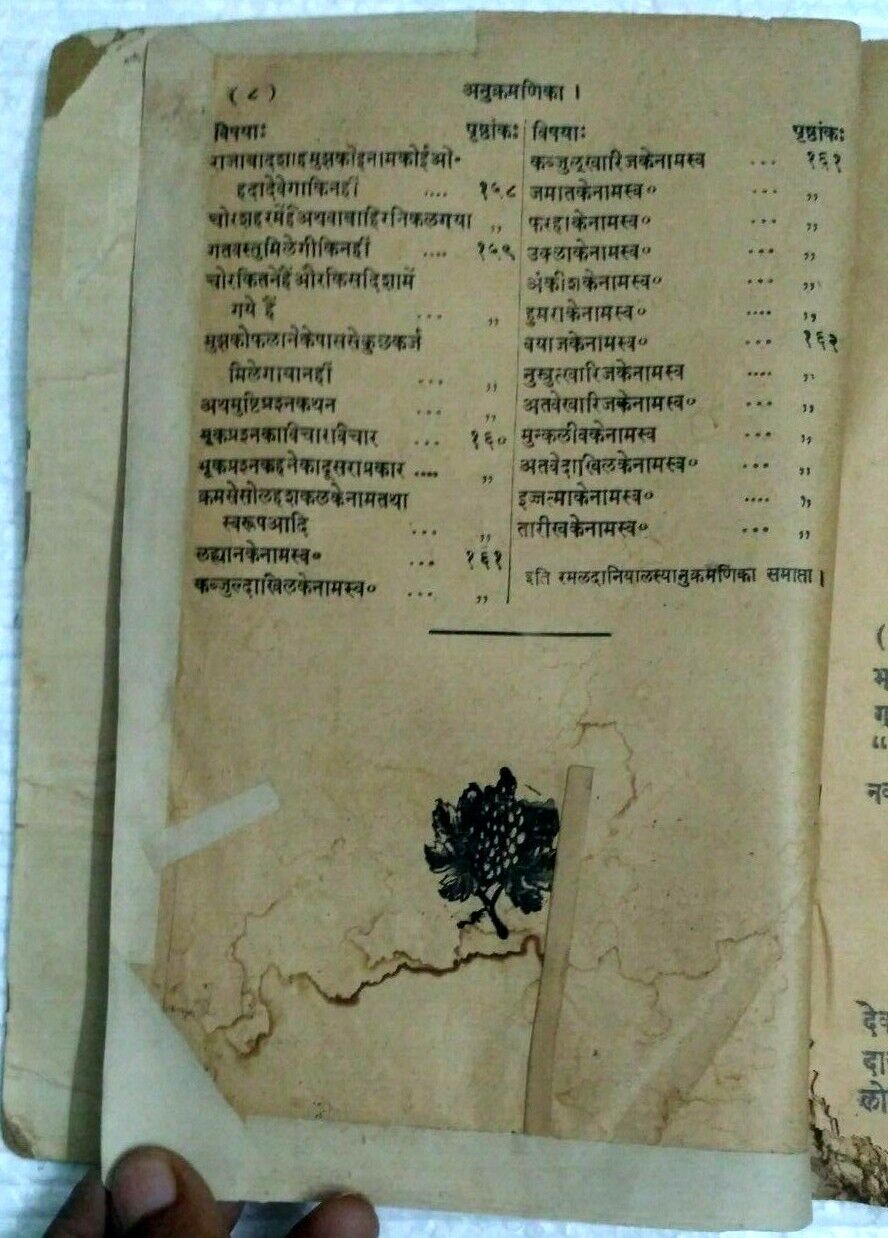 ( ८ )
अनुक्रमणिका ।
विषयाः
पृष्ठांकः
राजाबादशाहमुझकोइनामकोईओ-
हदादेवेगाकिनहीं .... १५८
चोरशहरमेंहैअथवाबाहिरनिकलगया ,,
गतवस्तुमिलेगीकिनहीं .... १५९
चोरकितनेहैंऔरकिसदिशामें
गये हैं ... ,,
मुझकोफलानेकेपाससेकुछकर्ज
मिलेगायानहीं ... ,,
अथमुष्टिप्रश्नकथन ... ,,
मूकप्रश्नकाविचाराविचार ... १६०
मूकप्रश्नकहनेकादूसराप्रकार .... ,,
क्रमसेसोलहशकलकेनामतथा
स्वरूपआदि ... ,,
लह्यानकेनामस्व० ... १६१
कब्जुल्दाखिलकेनामस्व० ... ,,
विषयाः
पृष्ठांकः
कब्जुल्खारिजकेनामस्व ... १६१
जमातकेनामस्व० ... ,,
फरहाकेनामस्व० ... ,,
उक्लाकेनामस्व० ... ,,
अंकीशकेनामस्व० ... ,,
हुमराकेनामस्व० .... ,,
बयाजकेनामस्व० ... १६२
नुस्त्रुत्खारिजकेनामस्व .... ,,
अतवेखारिजकेनामस्व० ... ,,
मुन्कलीबकेनामस्व ... ,,
अतवेदाखिलकेनामस्व० ... ,,
इज्जत्माकेनामस्व० .... ,,
तारीखकेनामस्व० ... ,,
इति रमलदानियालस्यानुक्रमणिका समाप्ता ।
(
ग
“
नव
दे
दा
को